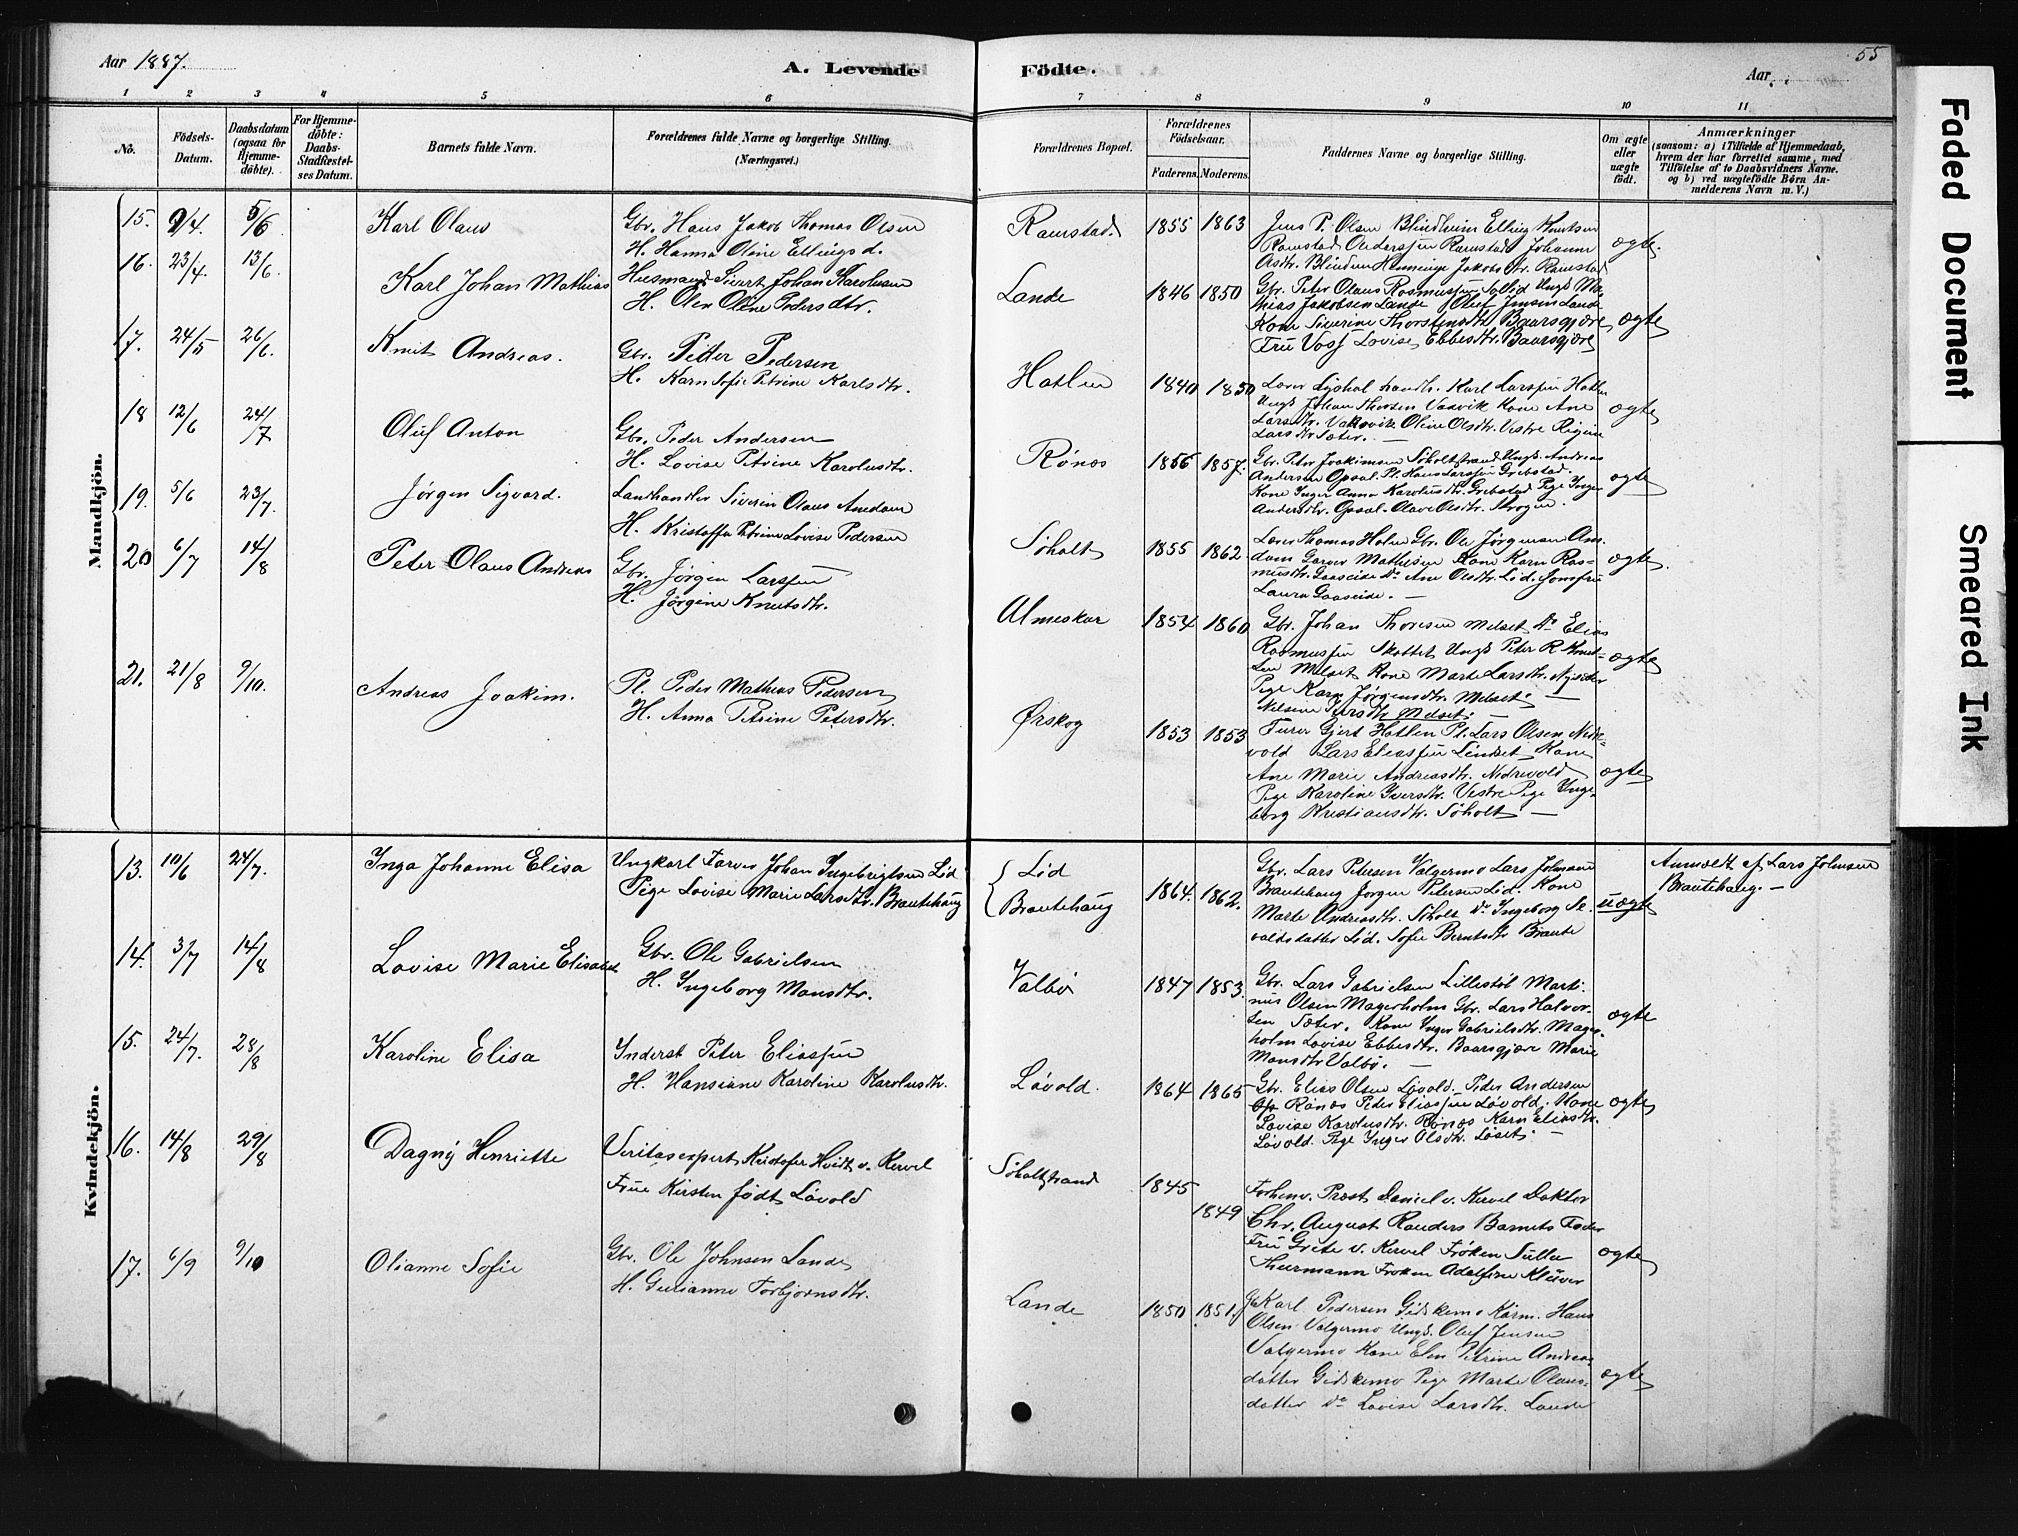 Aar 1887.
A. Levende
Födte.
Aar
55
1 2 3 4 5 6 7 8 9 10 11
No.
Födsels-Datum.
Daabsdatum (ogsaa för Hjemmedöbte).
For Hjemmedöbte: Daabs-Stadfæstelses Datum.
Barnets fulde Navn.
Forældrenes fulde Navne og borgerlige Stilling.
(Næringsvei.)
Forældrenes Bopæl.
Forældrenes Födselsaar.
Faderens. Moderens.
Faddernes Navne og borgerlige Stilling.
Om ægte eller uægte födt.
Anmærkninger
(saasom: a) i Tilfælde af Hjemmedaab, hvem der har forrettet samme, med Tilföielse af to Daabsvidners Navne. og b) ved uægtefödte Börn Anmelderens Navn m. V.)
Mandkjön.
15. 9/4. 5/6 Karl Olaus
Gbr. Hans Jakob Thomas Olsen
H. Hanna Oline Ellingsd.
Ramstad. 1855 1863
Jens P. Olsen Blindheim Elling Knutsen
Ramstad Anderssen Ramstad Johanne
ægte.
16. 23/4. 13/6. Karl Johan Mathias
Husmand Sivert Johan Karolusen
H. Olen Oline Pedersdtr.
Lande 1846 1850
Gbr. Peter Olaus Rasmussen Sollid Ungk. Ma-
thias Jakobsen Lande Oluf Jensen Lande
Kone Siverine Thorstensdtr. Baarsgjære
Fru Voss Lovise Ebbesdtr. Baarsgjære
ægte
17. 24/5 26/6. Knut Andreas.
Gbr. Petter Pedersen
H. Karn Sofie Petrine Karlsdtr.
Hatlen 1840 1850
Karl Larssen Hatlen
Ungk. Johan Thorsen Vadvik Kone Ane
Larsdtr. Vakevik Oline Olsdtr. Vestre Regine
Larsdtr Sæter. —
ægte
18 12/6 24/7 Oluf Anton
Gbr. Peder Andersen
H. Lovise Petrine Karolusdtr.
Rönæs 1856 1857.
Gbr. Peter Joakimsen Søholtstrand Ungk. Andreas
Andersen Opsal. Pl. Hans Larssen Grebstad.
Kone Inger Anna Karolusdtr. Grebstad Pige Inger
Andersdtr. Opsal. Olave Olsdtr. Skogen.
ægte
19. 5/6 23/7. Jörgen Sigvard.
Landhandler Siverin Olaus Amdam
H. Kristoffa Petrine Lovise Pedersen
Söholt 1855 1862.
Lærer Thomas Holm Gbr. Ole Jörgensen Am-
dam Garver Mathisen Kone Karn Ras-
musdtr. Gaaseide Do Ane Olsdtr. Lid. Jomfru
Laura Gaaseide. —
ægte.
20 6/7 14/8 Peter Olaus Andreas
Gbr. Jörgen Larssen
H. Jörgine Knutsdtr.
Almeskar 1854 1860
Gbr. Johan Thoresen Melset Do Elias
Rasmussen Skottet Ungk. Peter R. Knut-
sen Melset Kone Marte Larsdtr.
Pige Karn Jörgensdtr. Melset. —
Nelsine Iversdtr Melset.
ægte
21. 21/8 9/10. Andreas Joakim.
Pl. Peder Mathias Pedersen
H. Anna Petrine Petersdtr.
Ørskog 1853 1853
Furer Gjert Hatlen Pl. Lars Olsen Nedre-
vold Lars Eliassen Lindset Kone
Ane Marie Andreasdtr. Nedrevold
Pige Karoline Iversdtr. Vestre Pige Inge-
borg Kristiansdtr. Söholt —
ægte
Kvindekjön.
13. 10/6 24/7. Inga Johanne Elisa
Ungkarl Farver Johan Ingebrigtsen Lid
Pige Lovise Marie Larsdtr. Brautehaug
Lid
Brautehaug
1864. 1862.
Gbr. Lars Petersen Valgermo Lars Johnsen
Brautehaug Jörgen Petersen Lid. Kone
Marte Andreasdtr. Söholt Do Ingeborg Se-
valdsdatter Lid. Sofie Berntsdtr Braute
uægte
Anmeldt af Lars Johnsen
Brautehaug. —
14. 3/7 14/8 Lovise Marie Elisabet
Gbr. Ole Gabrielsen
H. Ingeborg Monsdtr.
Valbö 1847 1853.
Gbr. Lars Gabrielsen Lillestöl Marti-
nus Olsen Magerholm Gbr. Lars Halvor-
sen Sæter. Kone Inger Gabrielsdtr. Mager-
holm Lovise Ebbesdtr. Baarsgjære Marie
Monsdtr Valbö. —
ægte
15. 24/7. 28/8 Karoline Elisa
Inderst Peter Eliassen
H. Hansine Karoline Karolusdtr.
Lövold. 1864 1865
Gbr. Elias Olsen Lövold. Peder Andersen
Rönæs Peder Eliassen Lövold. Kone
Lovise Karolusdtr. Rönæs Karn Eliasdtr.
Lövold. Pige Inger Olsdtr. Löset. —
ægte
16. 14/8 29/8 Dagny Henriette
Veritasexpert Kristofer Hvidt v. Kervel
Frue Kirsten födt Lövold
Söholtstrand 1845 1849
Forhenv. Prost Daniel v. Kervel Doktor
Chr. August Randers Barnets Fader
Fru Grete v. Kervel Fröken Sulla
Thurmann Fröken Adelfine Klüver
ægte
17. 6/9 9/10 Olianne Sofie
Gbr. Ole Johnsen Lande
H. Gurianne Torbjörnsdtr.
Lande 1850 1851.
Gbr Karl Pedersen Gidskemo Kårm. Hans
Olsen Valgermo Ungk. Oluf Jensen
Valgermo Kone Elen Petrine Andreas-
datter Gidskemo Pige Marte Olaus-
datter Do Lovise Larsdtr. Lande
ægte
Faded Document
Smeared Ink